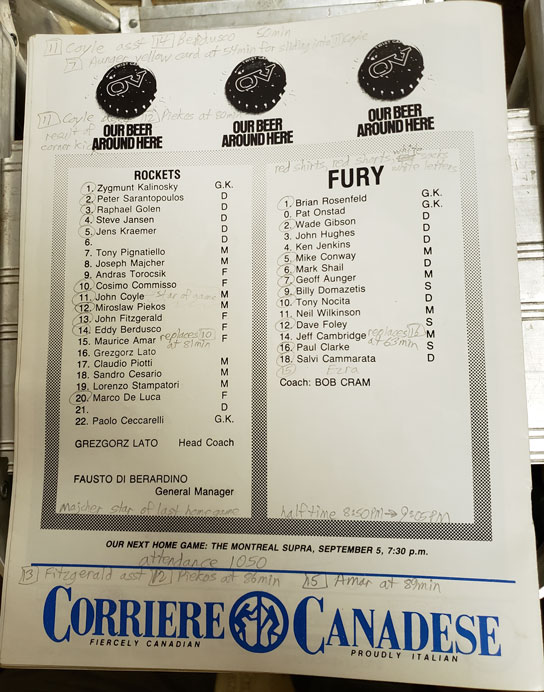 [11] Coyle asst [14] Berdusco 50min
[7] Aunger yellow card at 54min for sliding into [11] Coyle
[11] Coyle asst [12] Piekos at 80min
result of
corner kick
OV
OV
OV
OUR BEER
AROUND HERE
OUR BEER
AROUND HERE
OUR BEER
AROUND HERE
ROCKETS
1. Zygmunt Kalinosky G.K.
2. Peter Sarantopoulos D
3. Raphael Golen D
4. Steve Jansen D
5. Jens Kraemer D
6. D
7. Tony Pignatiello M
8. Joseph Majcher M
9. Andras Torocsik F
10. Cosimo Commisso F
11. John Coyle star of game M
12. Miroslaw Piekos M
13. John Fitzgerald F
14. Eddy Berdusco F
15. Maurice Amar replaces [10] at 81min F
16. Grezgorz Lato
17. Claudio Piotti M
18. Sandro Cesario M
19. Lorenzo Stampatori M
20. Marco De Luca F
21. D
22. Paolo Ceccarelli G.K.
GREZGORZ LATO Head Coach
FAUSTO DI BERARDINO
General Manager
Majcher star of last home game
red shirts, red shorts white socks
white letters
FURY
1. Brian Rosenfeld G.K.
0. Pat Onstad G.K.
2. Wade Gibson D
3. John Hughes D
4. Ken Jenkins D
5. Mike Conway M
6. Mark Shail D
7. Geoff Aunger M
9. Billy Domazetis S
10. Tony Nocita D
11. Neil Wilkinson M
12. Dave Foley S
14. Jeff Cambridge replaces [16] at 63min M
16. Paul Clarke S
18. Salvi Cammarata D
15 Ezra
Coach: BOB CRAM
halftime 8:50PM → 9:05PM
OUR NEXT HOME GAME: THE MONTREAL SUPRA, SEPTEMBER 5, 7:30 p.m.
attendance 1050
[13] Fitzgerald asst [12] Piekos at 86min [15] Amar at 89min
CORRIERE CANADESE
FIERCELY CANADIAN PROUDLY ITALIAN